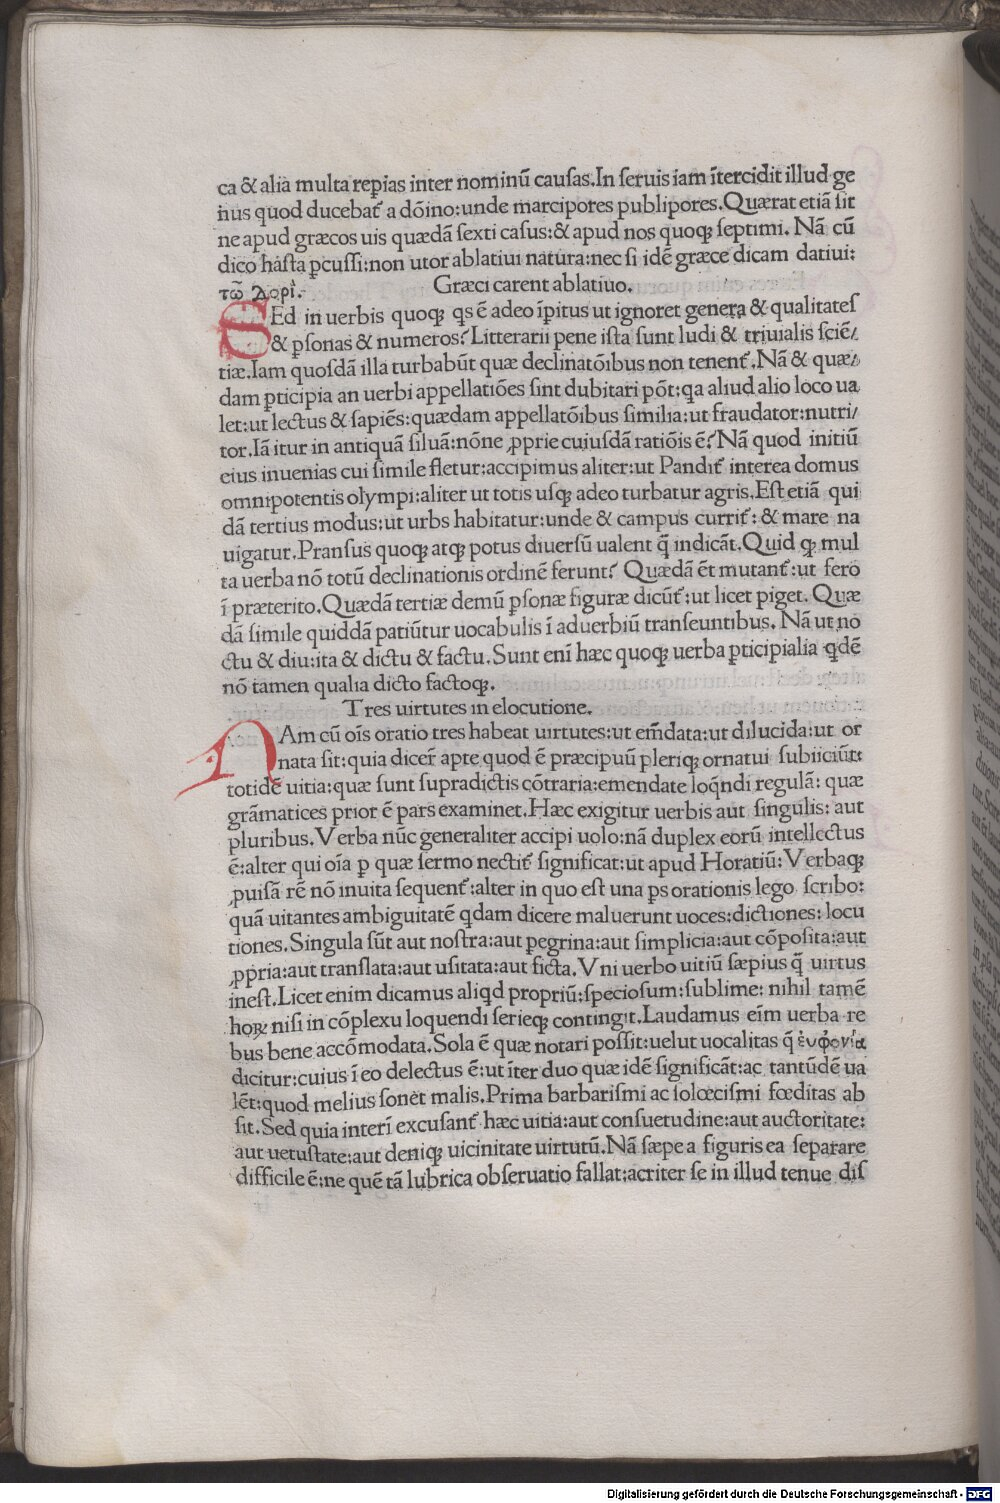 ca & alia multa reꝑias inter nominū causas.In seruis iam ītercidit illud ge
nus quod ducebaṫ a dōino:unde marcipores publipores.Quærat etiā sit
ne apud græcos uis quædā sexti casus:& apud nos quoqꝫ septimi. Nā cū
dico hasta ꝑcussi:non utor ablatiui natura:nec si idē græce dicam datiui:
τῶ δορί. Græci carent ablatiuo.
SEd in uerbis quoqꝫ qs ē adeo īꝑitus ut ignoret genera & qualitates
& ꝑsonas & numeros? Litterarii pene ista sunt ludi & triuialis sciē/
tiæ.Iam quosdā illa turbabūt quæ declinatōibus non tenenṫ.Nā & quæ/
dam ꝑticipia an uerbi appellatiōes sint dubitari pōt:qa aliud alio loco ua
let:ut lectus & sapiēs:quædam appellatōibus similia:ut fraudator:nutri/
tor.Iā itur in antiquā siluā:nōne ꝓprie cuiusdā ratiōis ē? Nā quod initiū
eius inuenias cui simile fletur:accipimus aliter:ut Pandiṫ interea domus
omnipotentis olympi:aliter ut totis usqꝫ adeo turbatur agris.Est etiā qui
dā tertius modus:ut urbs habitatur:unde & campus curriṫ: & mare na
uigatur.Pransus quoqꝫ atqꝫ potus diuersū ualent q̄ indicāt.Quid qꝫ mul
ta uerba nō totū declinationis ordinē ferunt? Quædā ēt mutanṫ:ut fero
ī præterito.Quædā tertiæ demū ꝑsonæ figuræ dicūṫ:ut licet piget. Quæ
dā simile quiddā patiūtur uocabulis ī aduerbiū transeuntibus. Nā ut no
ctu & diu:ita & dictu & factu.Sunt enī hæc quoqꝫ uerba ꝑticipialia qdē
nō tamen qualia dicto factoqꝫ.
Tres uirtutes in elocutione.
NAm cū oīs oratio tres habeat uirtutes:ut em̄data:ut dilucida:ut or
nata sit:quia dicer̄ apte quod ē præcipuū pleriqꝫ ornatui subiiciūt:
totidē uitia:quæ sunt supradictis cōtraria:emendate loqndi regulā: quæ
grāmatices prior ē pars examinet.Hæc exigitur uerbis aut singulis: aut
pluribus.Verba nūc generaliter accipi uolo:nā duplex eorū intellectus
ē:alter qui oīa ꝑ quæ sermo nectiṫ significat:ut apud Horatiū:Verbaqꝫ
ꝓuisā rē nō inuita sequenṫ:alter in quo est una ps orationis lego scribo:
quā uitantes ambiguitatē qdam dicere maluerunt uoces:dictiones: locu
tiones.Singula sūt aut nostra:aut ꝑegrina:aut simplicia:aut cōposita:aut
ꝓpria:aut translata:aut usitata:aut ficta.Vni uerbo uitiū sæpius q̄ uirtus
inest.Licet enim dicamus aliqd propriū:speciosum:sublime: nihil tamē
hoꝝ nisi in cōplexu loquendi serieqꝫ contingit.Laudamus eīm uerba re
bus bene accōmodata.Sola ē quæ notari possit:uelut uocalitas q̄ ἐυφονία
dicitur:cuius ī eo delectus ē:ut īter duo quæ idē significāt:ac tantūdē ua
lēt:quod melius sonet malis.Prima barbarismi ac solœcismi fœditas ab
sit.Sed quia interī excusanṫ hæc uitia:aut consuetudine:aut auctoritate:
aut uetustate:aut deniqꝫ uicinitate uirtutū.Nā sæpe a figuris ea separare
difficile ē:ne quē tā lubrica obseruatio fallat:acriter se in illud tenue dis
Digitalisierung gefördert durch die Deutsche Forschungsgemeinschaft - DFG